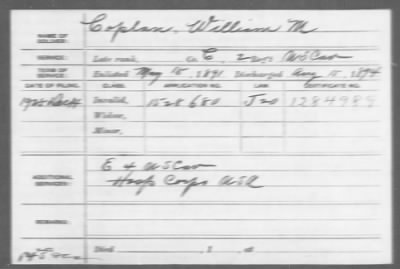 NAME OF SOLDIER: Coplan, William M
SERVICE: Late rank, Co. E, 22nd US Cav
TERM OF SERVICE: Enlisted May 15, 1891, Discharged Aug 15, 1894
DATE OF FILING. CLASS. APPLICATION NO. LAW. CERTIFICATE NO.
Invalid, 1528680 J20 1284989
Widow,
Minor,
ADDITIONAL SERVICES: E 4 US Cav
Hosp Corps USA
REMARKS:
Died , 1 , at